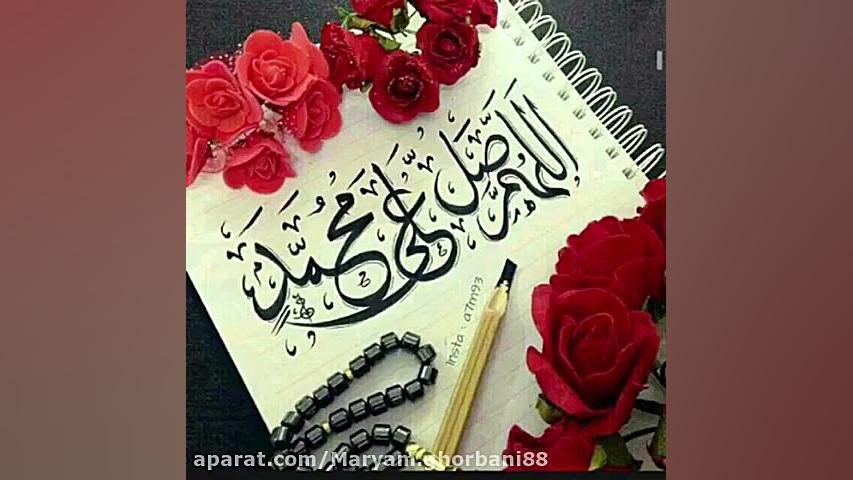 اللهم صل على محمد
Insta : a7m93
aparat.com/Maryam.ghorbani88